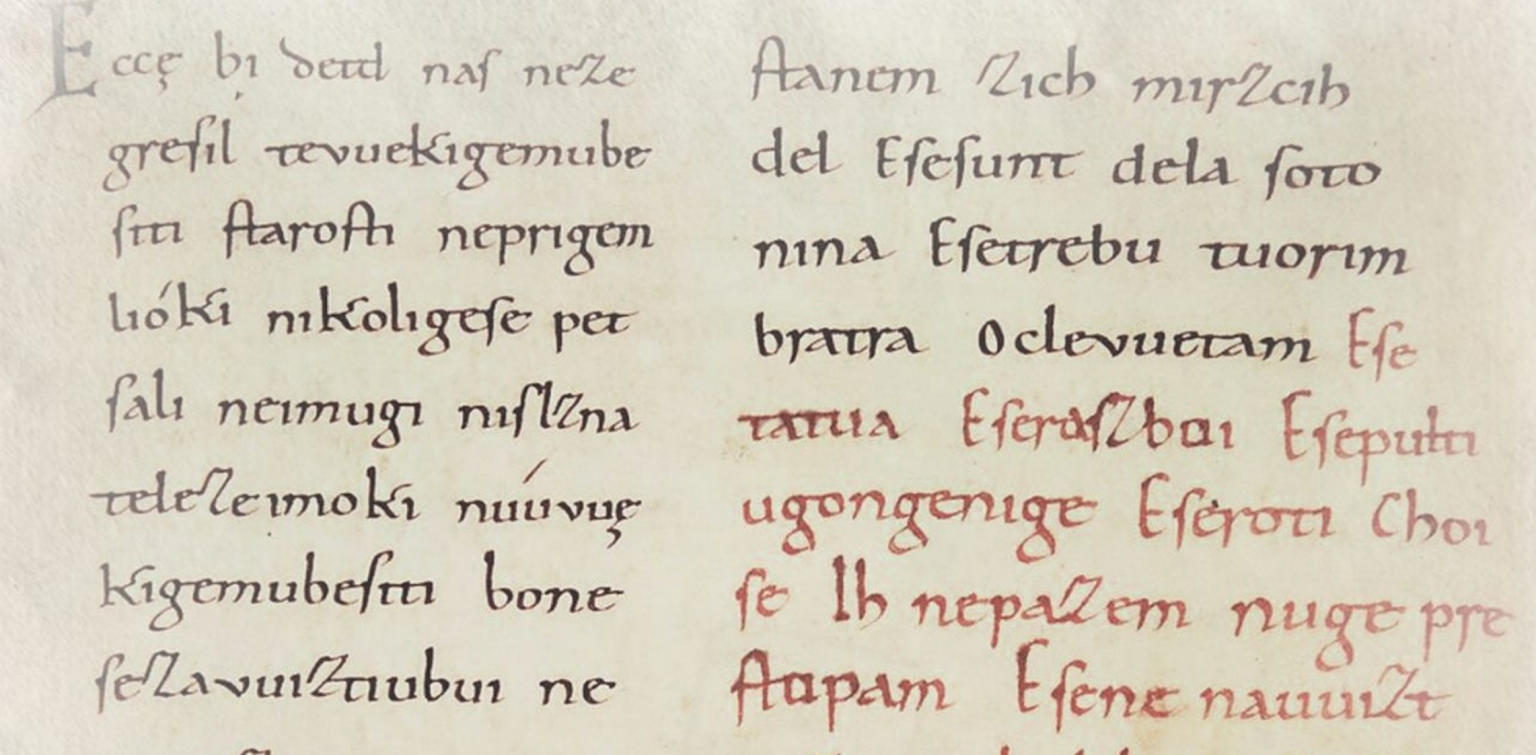 Eccę bi detd naſ neze
greſil tevuekigemube
ſiti ſtaroſti neprigem
lióki nikoligeſe pet
ſali neimugi niſlzna
telezeimoki núvvuę
kigemubeſiti bone
ſezavuiztiubui ne
ſtanem zich mirzcih
del Eſeſunt dela ſoto
nina Eſetrebu tuorim
bratra Oclevuetam Eſe
tatua Eſeraſzboi Eſepulti
ugongenige Eſeroti Choi
ſe Ih nepazem nuge pre
ſtopam Eſene nauuizt